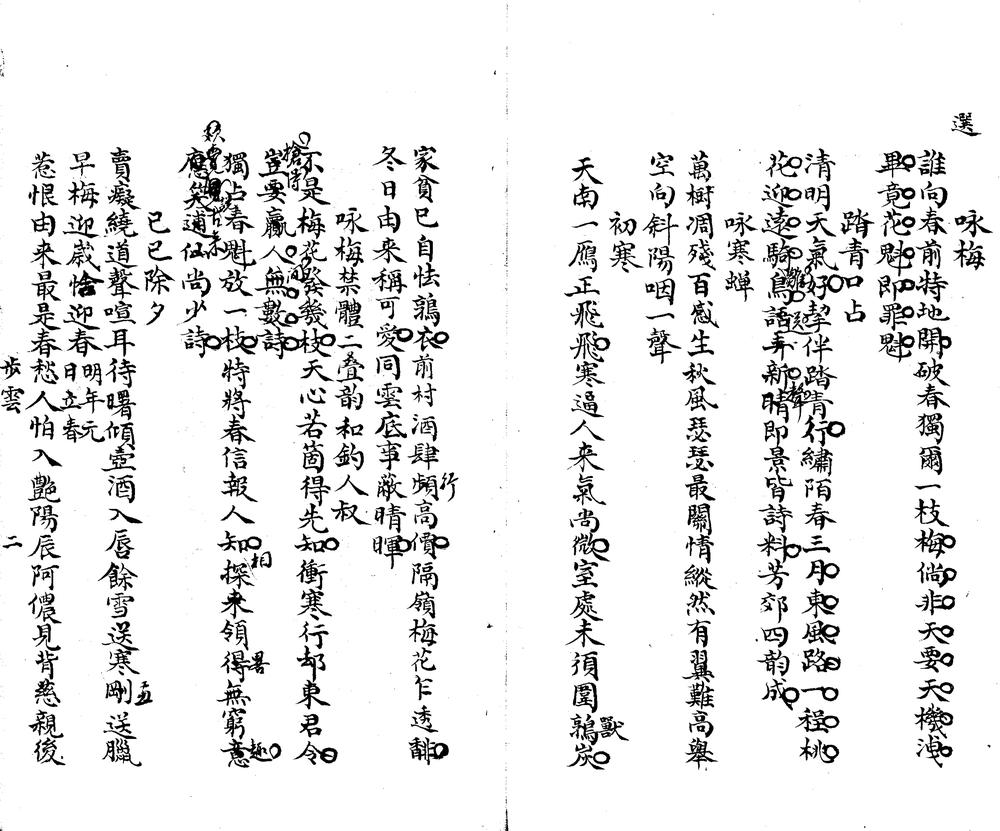 選
咏梅
誰向春前特地開破春獨爾一枝梅倘非天要天機洩
畢竟花魁即罪魁
踏青口占
清明天氣好挈伴踏青行繡陌春三月東風路一程桃
花迎遠騎鳥話弄新晴即景皆詩料芳郊四韵成
咏寒蟬
萬樹凋殘百感生秋風瑟瑟最關情縱然有翼難高舉
空向斜陽咽一聲
初寒
天南一鴈正飛飛寒逼人来氣尚微室處未須圍鶉炭
獸
家貧已自怯鶉衣前村酒肆頻高價隔嶺梅花乍透酣
行
冬日由来稱可愛同雲底事蔽晴暉
咏梅禁體二叠韵和釣人叔
不是梅花發幾枝天心若箇得先知衝寒行却東君令
豈要贏人無數詩
獨占春魁放一枝特將春信報人知探来領得無窮意
相
畧
趣
應笑逋仙尚少詩
己巳除夕
賣癡繞道聲喧耳待曙傾壺酒入唇餘雪送寒剛送臘
五
早梅迎歲恰迎春明年元日立春
惹恨由来最是春愁人怕入艷陽辰阿儂見背慈親後
步雲
二